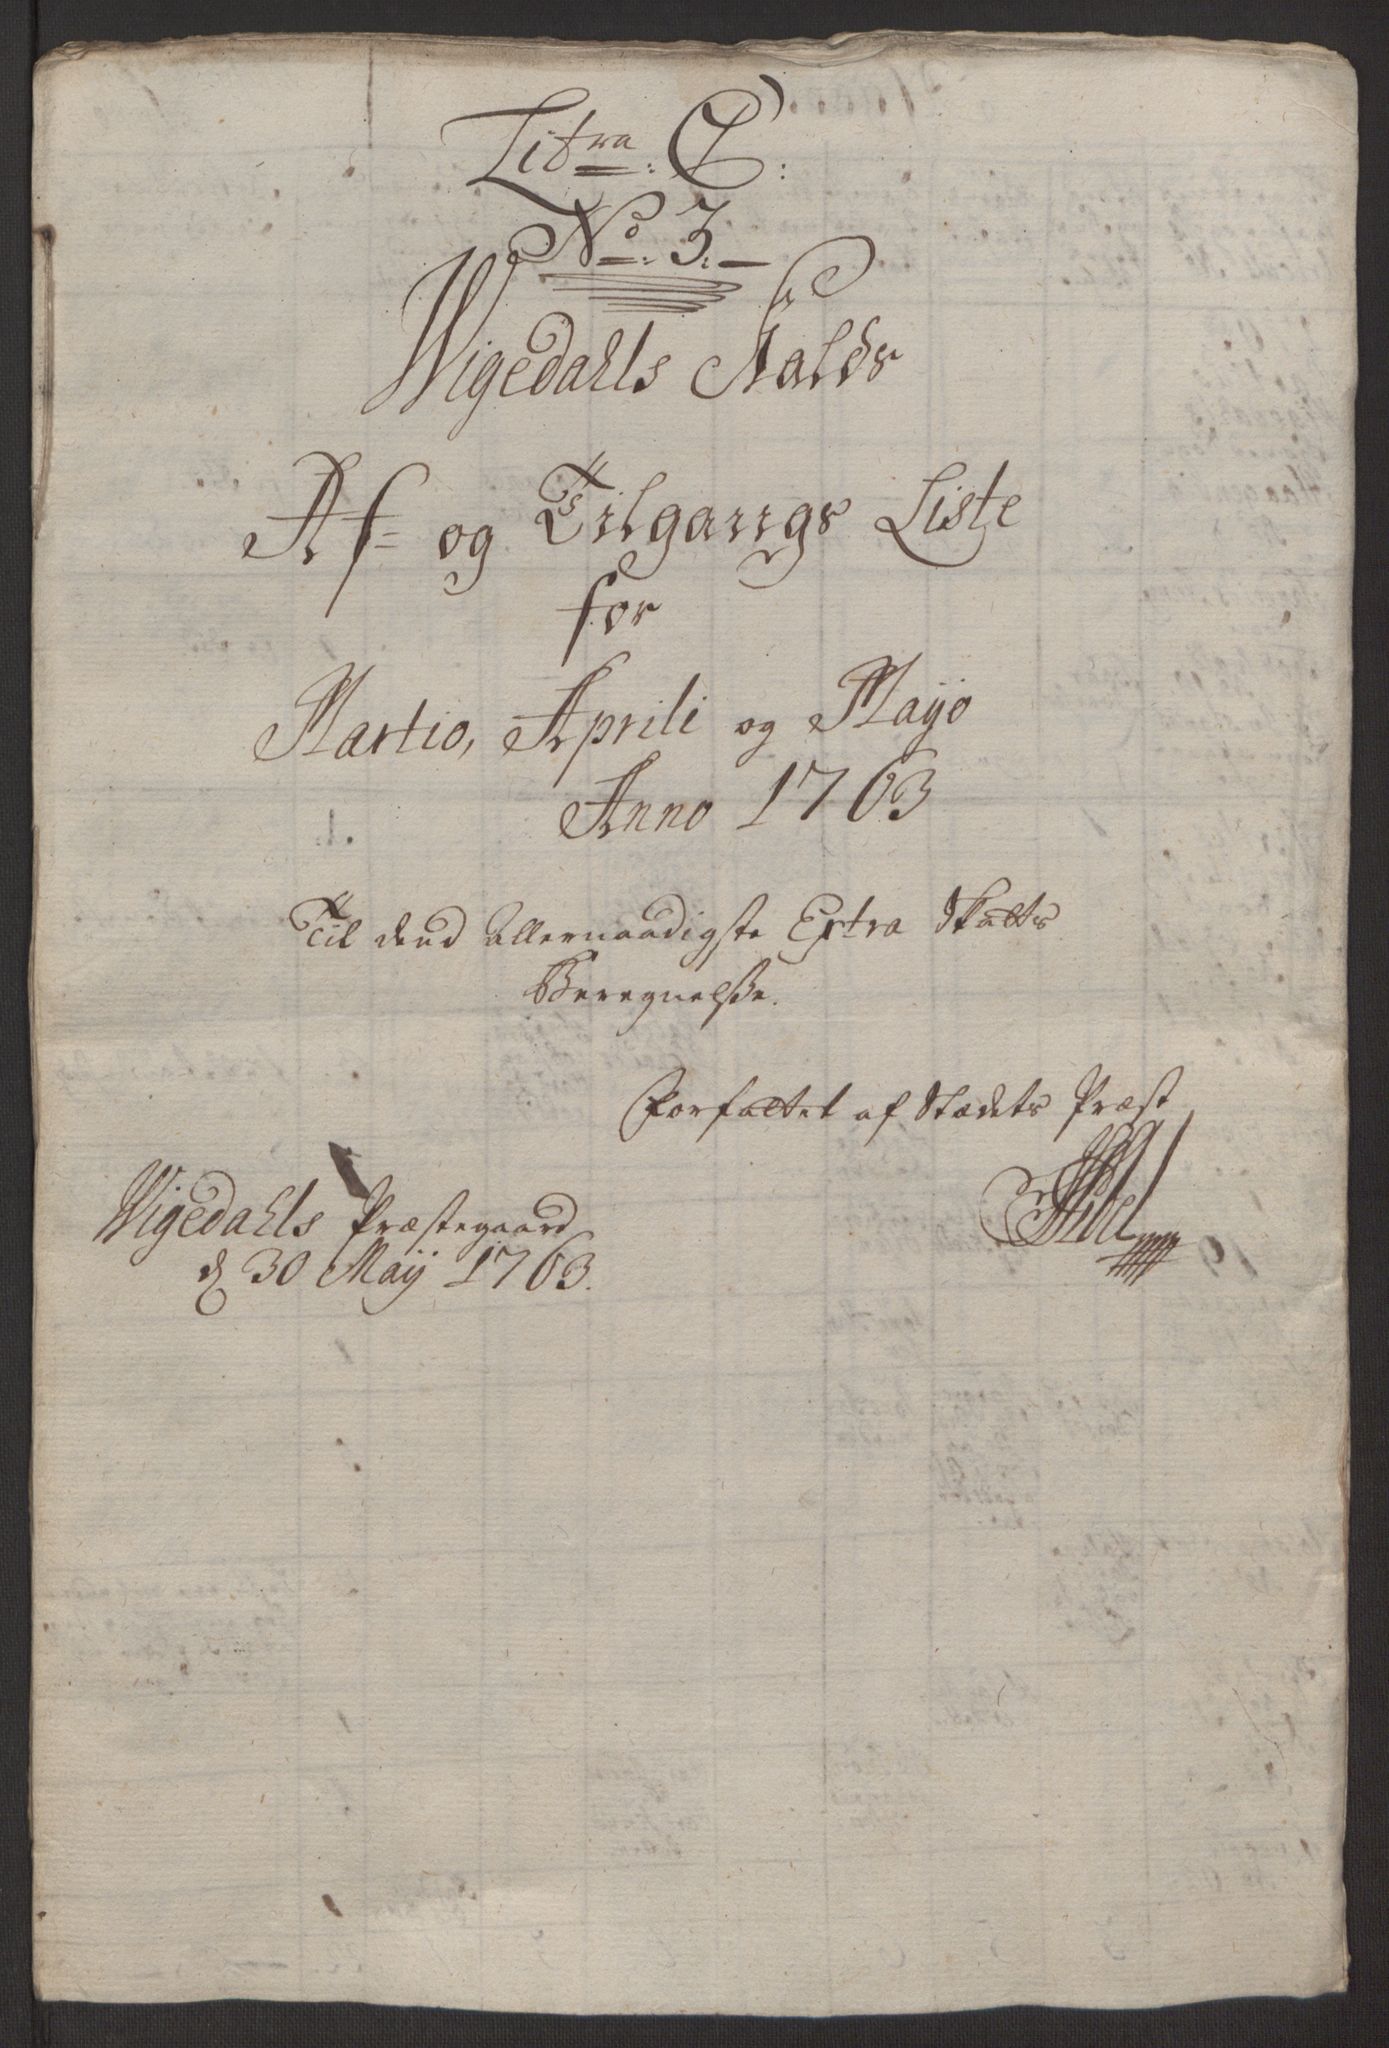 Lit:ra: C:
No: 3.
Wigedahls Kalds
Af= og Tilgangs Liste
for
Martio, Aprili og Mayo
Anno 1763
Til dend allernaadigste Extra Skatts
Beregnelsse.
Forfattet af Stædets Præst
Wigedahls Præstegaard
d 30 Maÿ 1763.